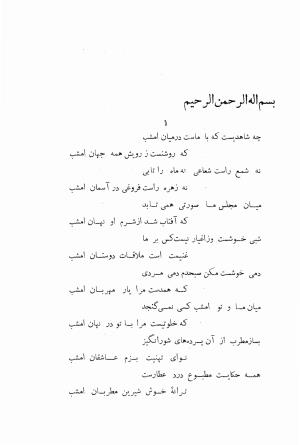 بسم اله الرحمن الرحیم
۱
چه شاهدیست که با ماست درمیان امشب
که روشنست ز رویش همه جهان امشب
نه شمع راست شعاعی نه ماه را تابی
نه زهره راست فروغی در آسمان امشب
میان مجلس ما صورتی همی تابد
که آفتاب شد ازشرم او نهان امشب
شبی خوشست وزاغیار نیست کس بر ما
غنیمت است ملاقات دوستان امشب
دمی خوشست مکن صبحدم دمی مردی
که همدست مرا یار مهربان امشب
میان ما و تو امشب کسی نمی گنجد
که خلوتیست مرا با تو در نهان امشب
بساز مطرب از آن پرده‌های شورانگیز
نوای تهنیت بزم عاشقان امشب
همه حکایت مطبوع درد عطارست
ترانهٔ خوش شیرین مطربان امشب